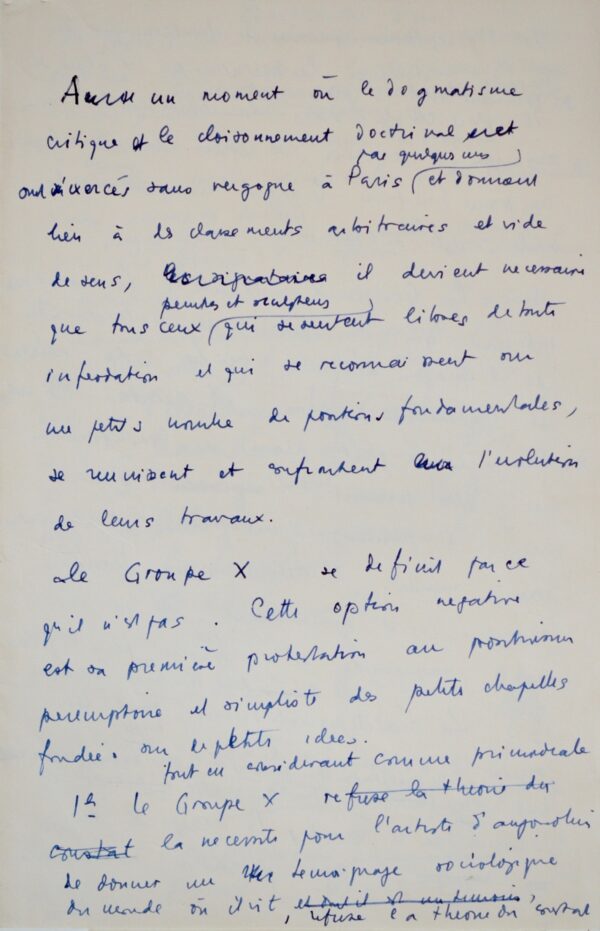 un moment où le dogmatisme
critique et le cloisonnement doctrinal
par quelques uns
sont exercés sans vergogne à Paris et donnent
lieu à des classements arbitraires et vide
de sens, il devient necessaire
peintres et sculpteurs
que tous ceux qui se sentent libres de toute
infeodation et qui se reconnaissent sur
un petits nombre de positions fondamentales,
se reunissent et confrontent l'evolution
de leurs travaux.
Le Groupe X se definit par ce
qu'il n'est pas. Cette option negative
est sa première protestation au positivisme
peremptoire et simpliste des petites chapelles
fondées sur de petites idées.
tout en considerant comme primordiale
1° le Groupe X refuse la theorie du
constat la necessité pour l'artiste d'aujourd'hui
de donner un temoignage sociologique
du monde où il vit, et dont il est un temoin, refuse la theorie du constat